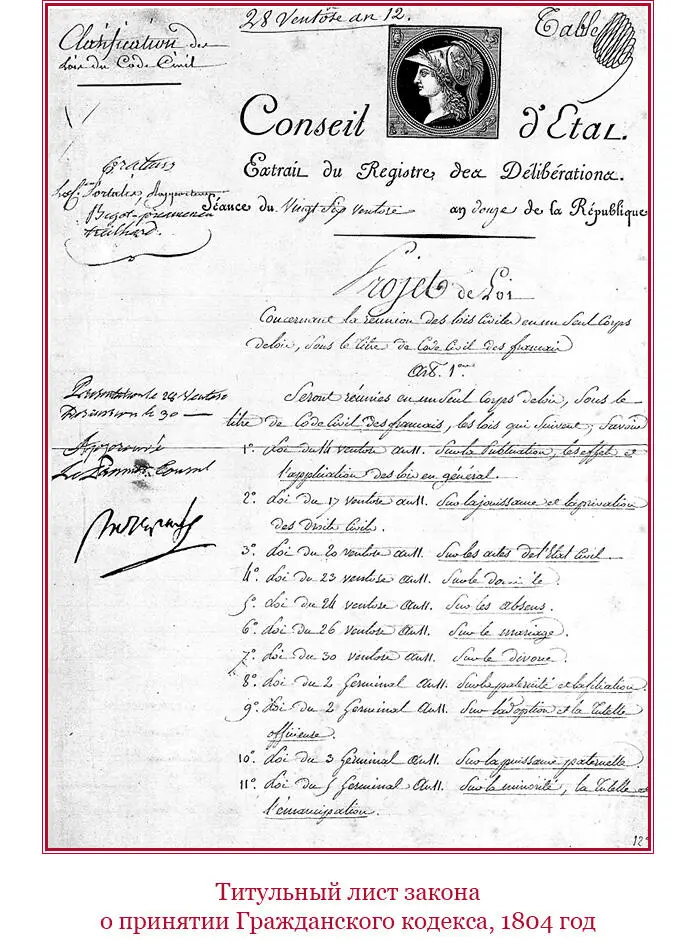 28 Ventôse an 12.
Table
Classification des
Lois du Code Civil
Conseil d'Etat.
Extrait du Registre des Délibérations.
Séance du Vingt Sep ventose an douze de la République
Portalis,
Bigot-préameneu
Treilhard.
Projet de Loi
Concernant la réunion des lois civiles en un seul Corps
de loix, sous le titre de Code Civil des français
Art. 1er
Seront réunies en un seul Corps de loix, sous le
titre de Code Civil des français, les lois qui suivent; savoir
Présentation le 24 Ventose
Discussion le 30
Approuvé
Le Premier Consul
1o. Loi du 14 ventose an 11. Sur la Publication, les effets et
l'application des lois en général.
2o. Loi du 17 ventose an 11. Sur la jouissance et la privation
des droits civils.
3o. Loi du 20 ventose an 11. Sur les actes de l'Etat Civil.
4o. Loi du 23 ventose an 11. Sur le domicile.
5o. Loi du 24 ventose an 11. Sur les absens.
6o. Loi du 26 ventose an 11. Sur le mariage.
7o. Loi du 30 ventose an 11. Sur le divorce.
8o. Loi du 2 Germinal an 11. Sur la paternité et la filiation.
9o. Loi du 2 Germinal an 11. Sur l'adoption et la Tutelle
officieuse.
10o. Loi du 3 Germinal an 11. Sur la puissance paternelle.
11o. Loi du 5 Germinal an 11. Sur la minorité, la Tutelle et
l'émancipation.
Титульный лист закона
о принятии Гражданского кодекса, 1804 год